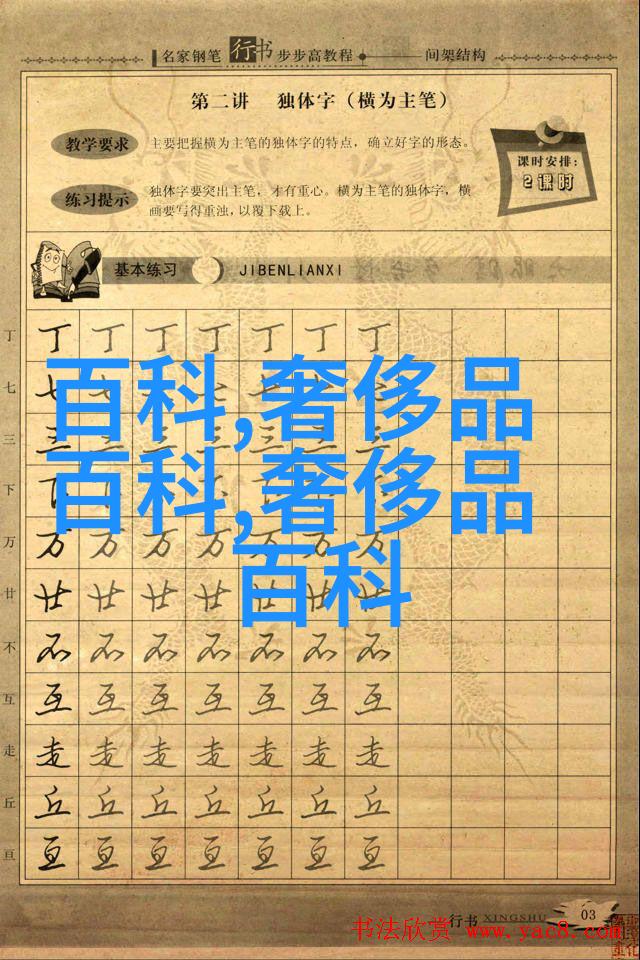 名家钢笔行书步步高教程 间架结构
第二讲 独体字（横为主笔）
教学要求
主要把握横为主笔的独体字的特点，确立好字的形态。
课时安排：
2课时
练习提示
独体字要突出主笔，才有重心。横为主笔的独体字，横
画要写得重浊，以覆下载上。
基本练习 JIBENLIANXI
丁 丁 丁 丁 丁 丁 丁 丁
百科,奢侈品
七 七 七
三 三 三 三 三
百科,奢侈品
下 下
万 万 万 万 万 万 万 万
百科
廿 廿 廿 廿 廿 廿 廿 廿
不 不 不 不 不 不 不 不
互 互 互 互 互 互 互 互
走 走 走 走 走 走 走 走
丘 丘 丘 丘 丘 丘 丘 丘
亘 亘 亘 亘 亘 亘 亘 亘
行书 XINGSHU 03
书法欣赏 www.yac8.com